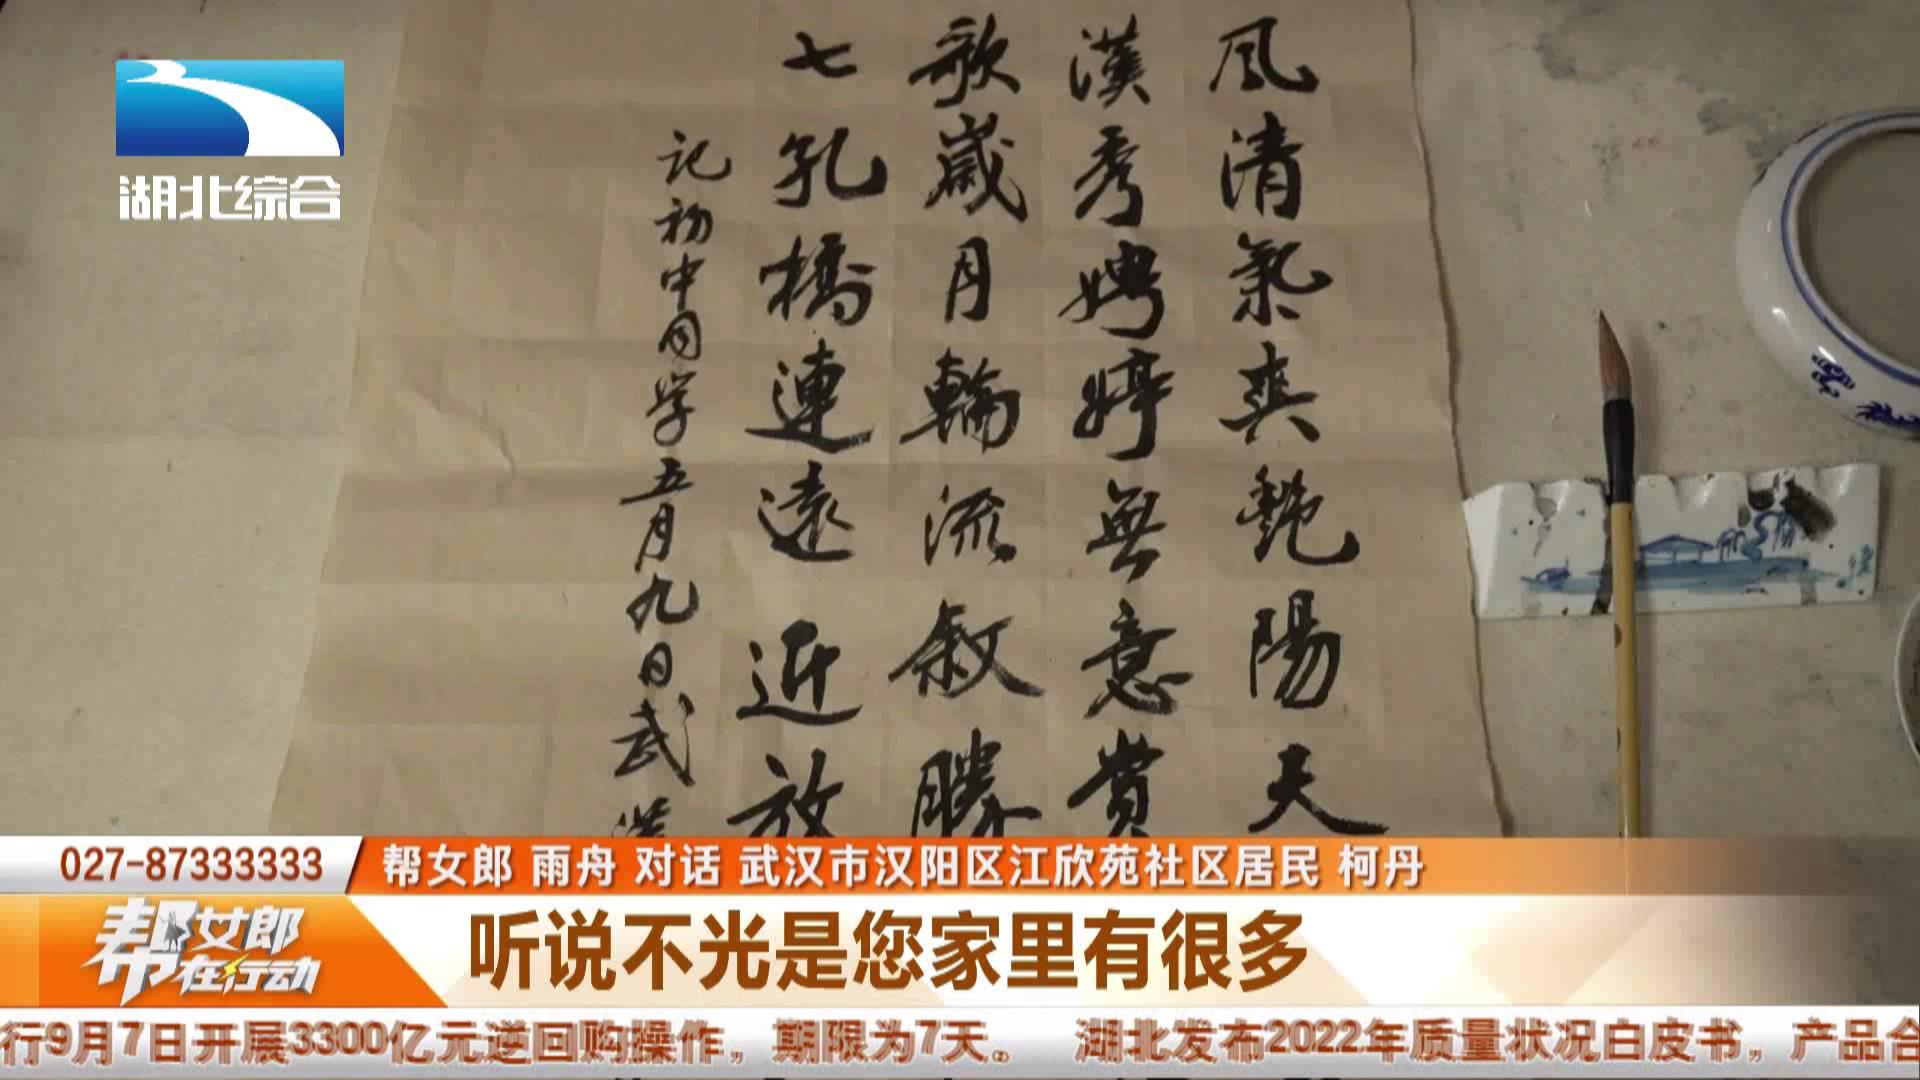 湖北综合
風清氣爽艷陽天
漢秀娉婷無意賞
歌歲月輪流敘勝
七孔橋連遠近放
记初中同学五月九日武漢
027-87333333
帮女郎 雨舟 对话 武汉市汉阳区江欣苑社区居民 柯丹
帮女郎在行动
听说不光是您家里有很多
行9月7日开展3300亿元逆回购操作，期限为7天。 湖北发布2022年质量状况白皮书，产品合